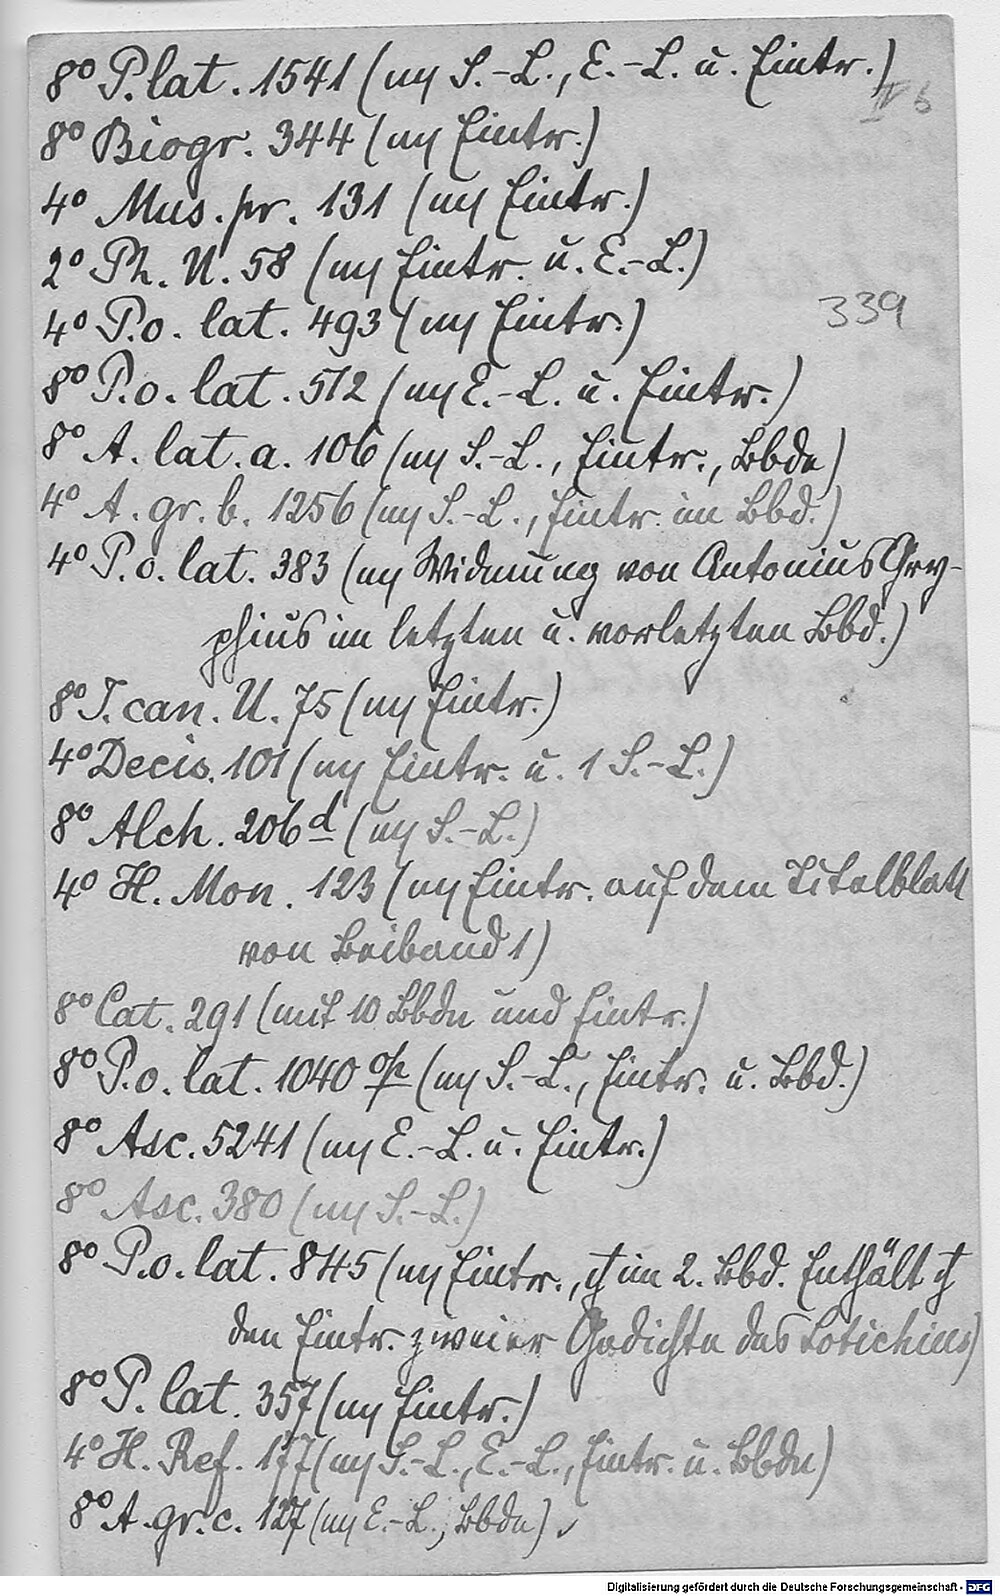 8° P. lat. 1541 (m S.-L., E.-L. u. Eintr.)
IV 6
8° Biogr. 344 (m Eintr.)
4° Mus. pr. 131 (m Eintr.)
2° Ph. U. 58 (m Eintr. u. E.-L.)
339
4° P. o. lat. 493 (m Eintr.)
8° P. o. lat. 512 (m E.-L. u. Eintr.)
8° A. lat. a. 106 (m S.-L., Eintr., Bbde)
4° A. gr. b. 1256 (m S.-L., Eintr. im Bbd.)
4° P. o. lat. 383 (m Widmung von Antonius Gry-
phius im letzten u. vorletzten Bbd.)
8° J. can. U. 75 (m Eintr.)
4° Decis. 101 (m Eintr. u. 1 S.-L.)
8° Alch. 206 d (m S.-L.)
4° H. Mon. 123 (m Eintr. auf dem Titelblatt
von Beiband 1)
8° Cat. 291 (mit 10 Bbdn und Eintr.)
8° P. o. lat. 1040 op (m S.-L., Eintr. u. Bbd.)
8° Asc. 5241 (m E.-L. u. Eintr.)
8° Asc. 380 (m S.-L.)
8° P. o. lat. 845 (m Eintr., im 2. Bbd. Enthält
den Eintr. zweier Gedichte des Lotichius)
8° P. lat. 357 (m Eintr.)
4° H. Ref. 177 (m S.-L., E.-L., Eintr. u. Bbdn)
8° A. gr. c. 127 (m E.-L., Bbde)
Digitalisierung gefördert durch die Deutsche Forschungsgemeinschaft - DFG